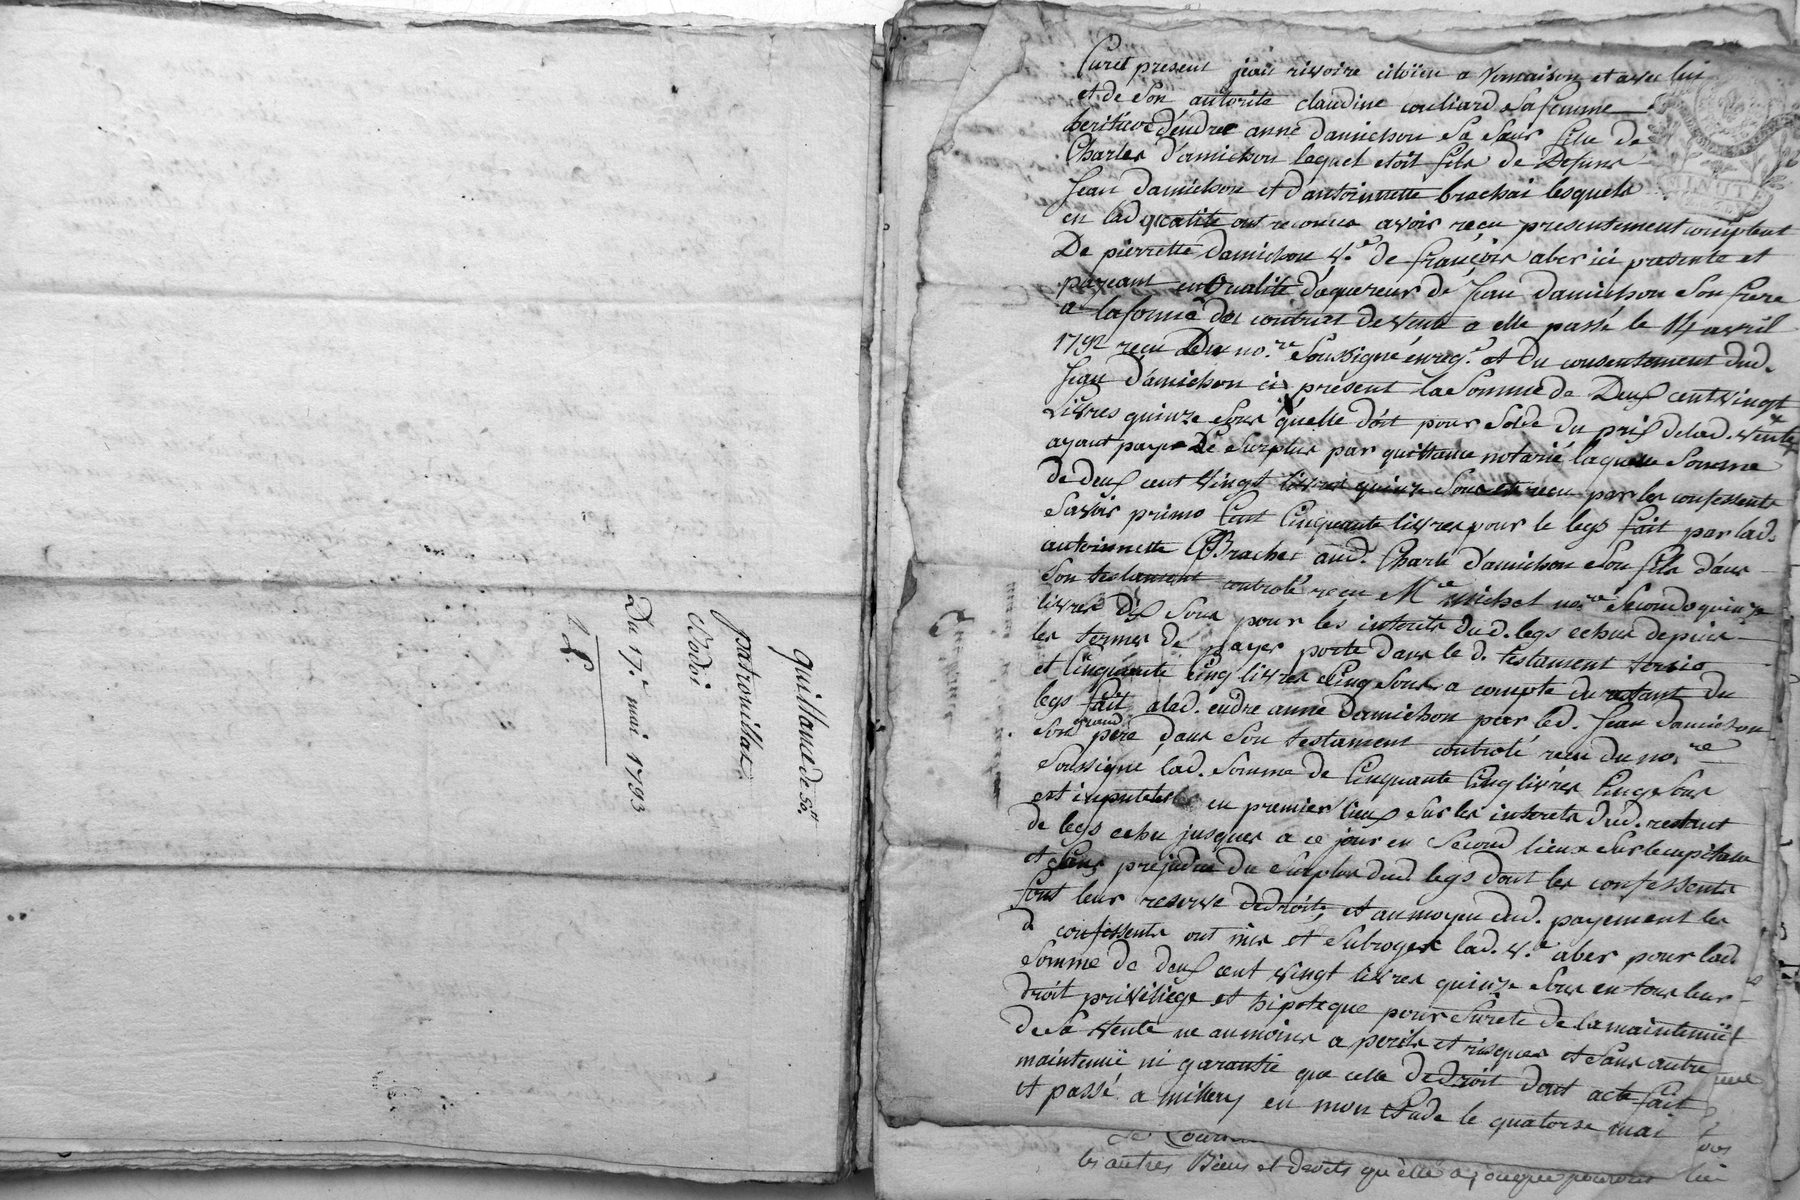 quittance de 50.tt
patrouillat
Bodoi
Du 17.e mai 1793
furet present jean rivoire citoïen a Vernaison et avec lui
et de son autorité claudine couliard sa femme
heritiere d'eudre anne damichon sa sœur fille de
Charles d'amichon lequel etoit fils de Defunt
Jean damichon et d'antoinette brachai lesquels
en lad qualité ont reconnu avoir reçu presentement comptant
De pierrette damichon v.e de françois aber ici presente et
payeant en qualité d'aquereur de Jean damichon son frere
a la forme du contrat de vente a elle passé le 14 avril
1792 reçu du no.re soussigné enreg.é et du consentement dud.
Jean d'amichon ici present la somme de Deux cent vingt
livres quinze sous qu'elle doit pour solde du prix de lad. vente
ayant payé le surplus par quittance notarié laquelle somme
de deux cent vingt livres quinze sous est reçu par les confessents
savoir primo Cent Cinquante livres pour le legs fait par lad.
antoinnette Brachet aud. Charle d'amichon son fils dans
son testament controlé reçu M.e michel no.re secondo quinze
livres dix sous pour les interets dud. legs echus depuis
les termes de payer porté dans le d. testament tersio
et Cinquante Cinq livres Cinq sous a compte du restant du
legs fait a lad. eudre anne damichon par led. Jean damichon
son grand pere dans son testament controlé reçu du no.re
soussigné lad. somme de Cinquante Cinq livres Cinq sous
est imputable en premier lieux sur les interets dud. restant
de legs echu jusques a ce jour en second lieux sur le capital
et sans prejudice du surplus dud. legs dont les confessents
font leur reserve de droit, et au moyen dud. payement les
d confessents ont mis et subrogés lad. v.e aber pour lad.
somme de deux cent vingt livres quinze sous en tous leurs
droit privilege et hipoteque pour sureté de la maintenüe
de sa vente ne au moins a perils et risques et sans autre
maintenüe ni garantie que celle de droit dont acte fait
et passé a millery en mon etude le quatorse mai
les autres Biens et droits qu'elle a